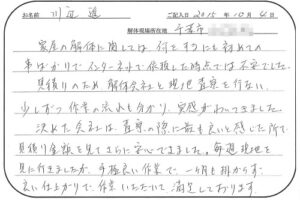 お名前 川辺 進 ご記入日 2015年10月4日
解体現場所在地 千葉市
家屋の解体に関しては何をするにも初めての
事ばかりで、インターネットで依頼した時点では不安でした。
見積りのため、解体会社と現地査察を行ない、
少しずつ作業の流れも分かり、実感がわいてきました。
決めた会社は、査察の際に最も良いと感じた所で、
見積り金額を見てさらに安心できました。毎週現地を
見に行きましたが、手際良い作業で、一ヶ月も掛からず、
良い仕上がりで作業いただいて満足しております。